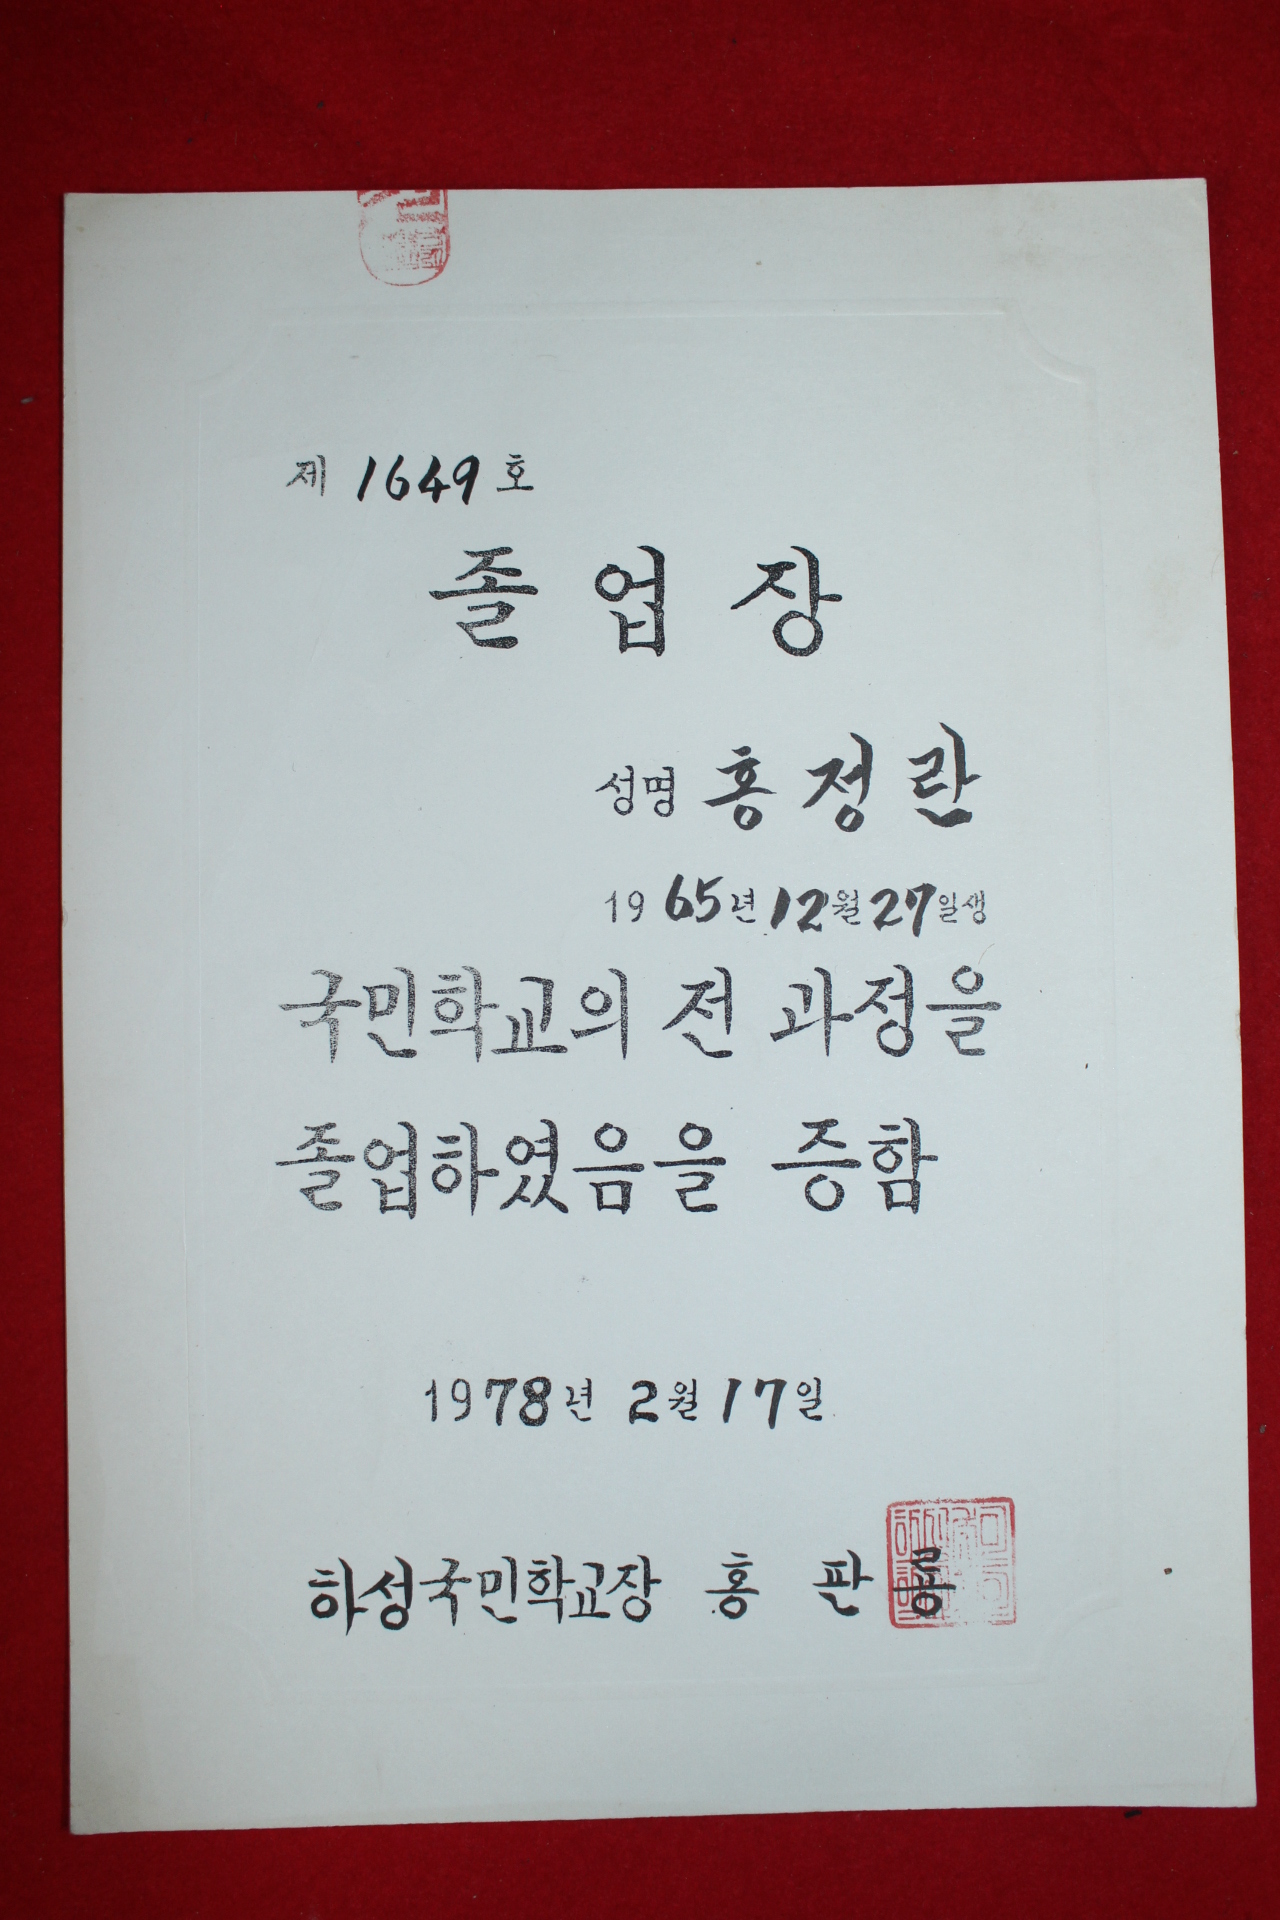 제 1649 호
졸업장
성명 홍정란
1965년 12월 27일생
국민학교의 전 과정을
졸업하였음을 증함
1978년 2월 17일
하성국민학교장 홍 판 룡